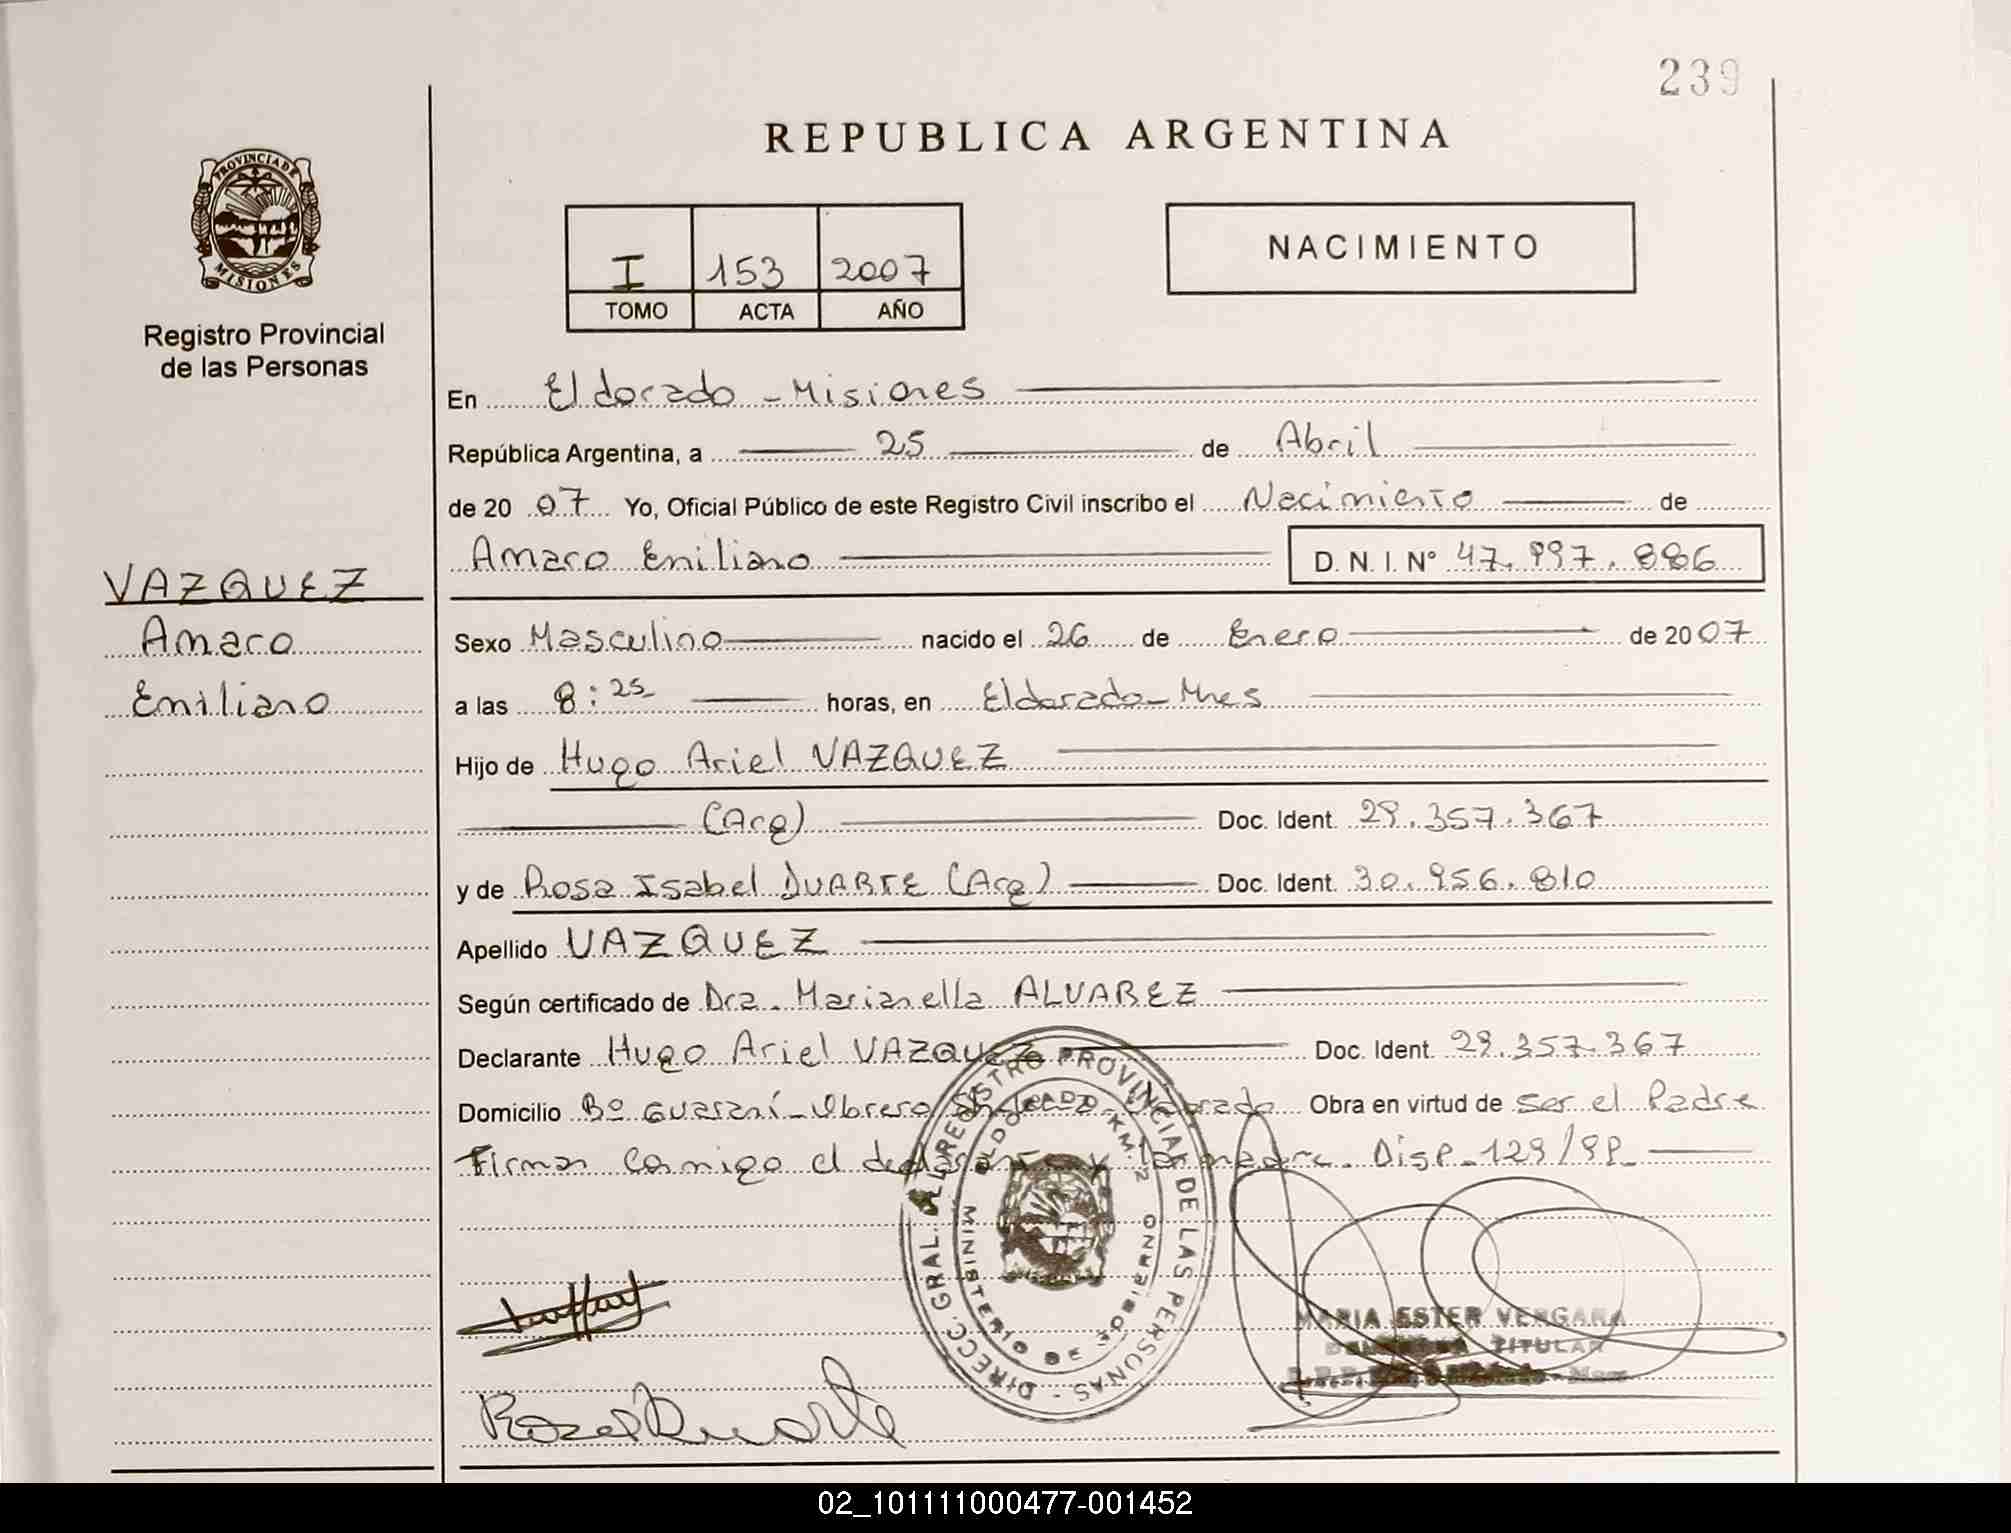 239
REPUBLICA ARGENTINA
PROVINCIA DE
MISIONES
Registro Provincial
de las Personas
I 153 2007
TOMO ACTA AÑO
NACIMIENTO
En Eldorado - Misiones
República Argentina, a 25 de Abril
de 2007 Yo, Oficial Público de este Registro Civil inscribo el Nacimiento de
Amaro Emiliano D. N. I. N° 47.997.886
VAZQUEZ
Amaro
Emiliano
Sexo Masculino nacido el 26 de Enero de 2007
a las 8:25 horas, en Eldorado - Mnes
Hijo de Hugo Ariel VAZQUEZ
(Arg) Doc. Ident. 29.357.367
y de Rosa Isabel DUARTE (Arg) Doc. Ident. 30.956.810
Apellido VAZQUEZ
Según certificado de Dra. Marianella ALVAREZ
Declarante Hugo Ariel VAZQUEZ Doc. Ident. 29.357.367
Domicilio Bº Guaraní - Obrero Eldorado Obra en virtud de ser el Padre
Firman conmigo el declarante y la madre. Disp. 129/98
DIRECC. GRAL. DEL REGISTRO PROVINCIAL DE LAS PERSONAS
ELDORADO KM. 2
MINISTERIO DE GOBIERNO
MARIA ESTER VERGARA
TITULAR
Rosa Duarte
02_101111000477-001452